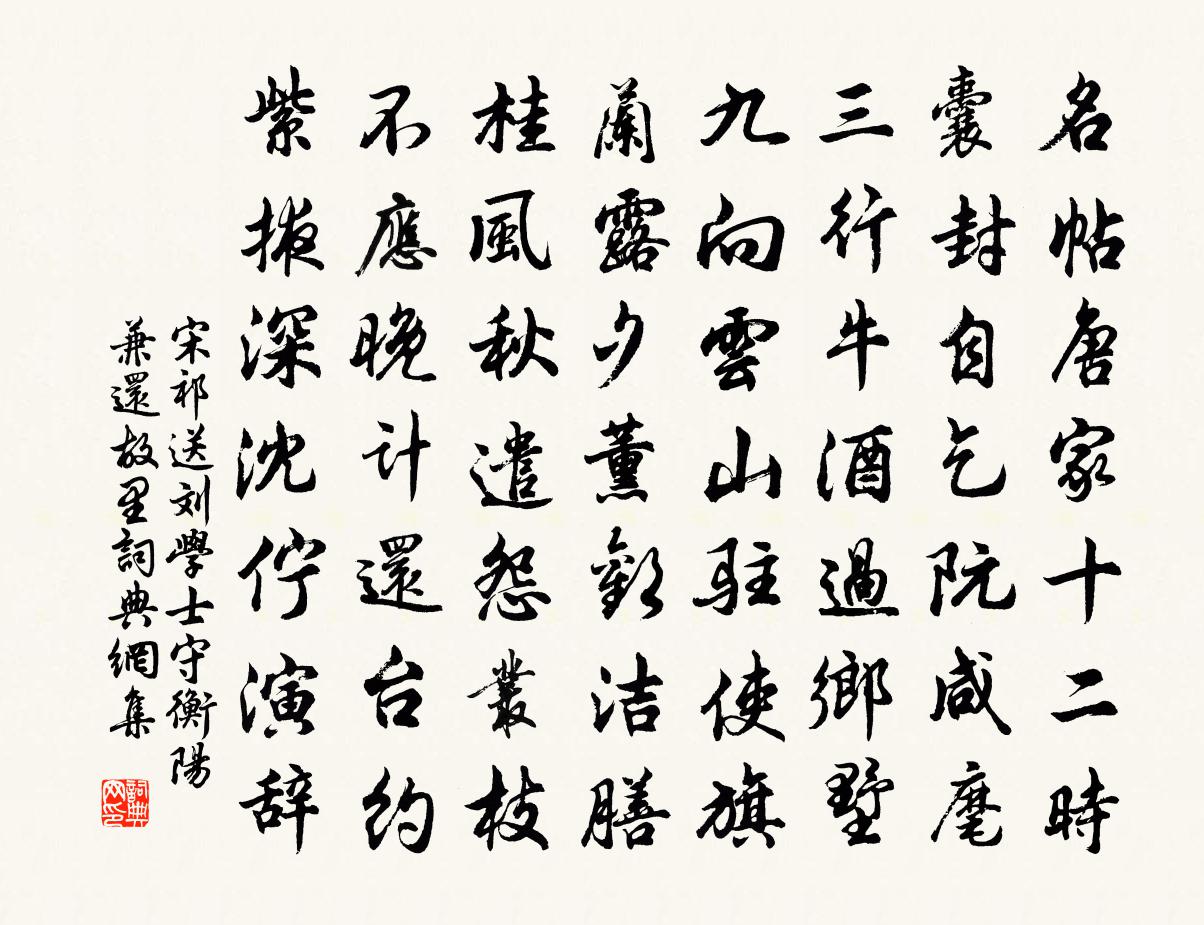 名帖唐家十二時
囊封自乞阮咸麾
三行牛酒過鄉墅
九向雲山駐使旗
蘭露夕薰歡洁膳
桂風秋遣怨叢枝
不應晚计還台约
紫掖深沈佇演辞
宋祁送刘學士守衡陽
兼還故里詞典網集
詞典网印